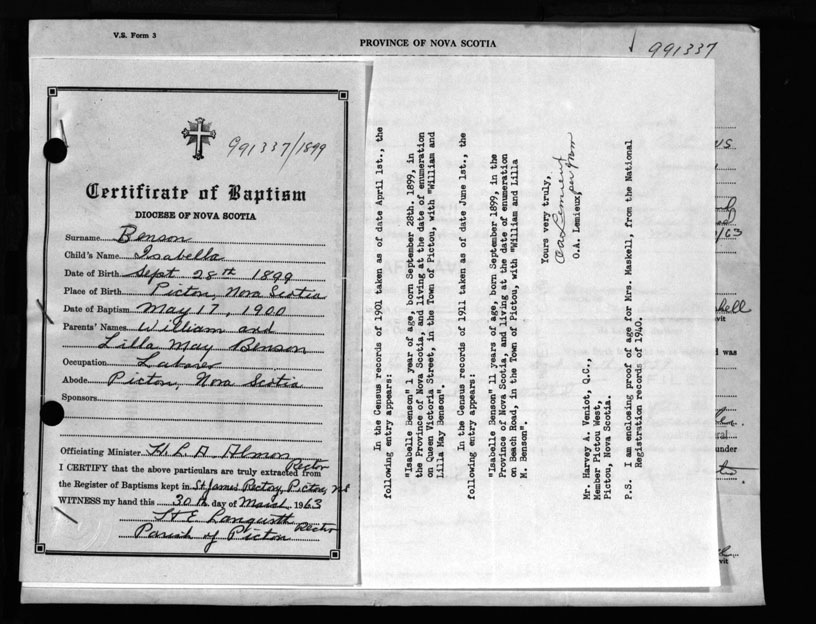 V.S. Form 3
PROVINCE OF NOVA SCOTIA
991337
991337/1899
Certificate of Baptism
DIOCESE OF NOVA SCOTIA
Surname Benson
Child's Name Isabella
Date of Birth Sept 28th 1899
Place of Birth Pictou, Nova Scotia
Date of Baptism May 17, 1900
Parents' Names William and
Lilla May Benson
Occupation Laborer
Abode Pictou, Nova Scotia
Sponsors
Officiating Minister H. L. A. Almon
Rector
I CERTIFY that the above particulars are truly extracted from
the Register of Baptisms kept in St James Rectory, Pictou, NS
WITNESS my hand this 30th day of March 1963
Rector
Parish of Pictou
In the Census records of 1901 taken as of date April 1st., the
following entry appears:
"Isabelle Benson" 1 year of age, born September 28th. 1899, in
the Province of Nova Scotia, and living at the date of enumeration
on Queen Victoria Street, in the Town of Pictou, with "William and
Lilla May Benson".
In the Census records of 1911 taken as of date June 1st., the
following entry appears:
"Isabelle Benson" 11 years of age, born September 1899, in the
Province of Nova Scotia, and living at the date of enumeration
on Beach Road, in the Town of Pictou, with "William and Lilla
M. Benson".
Yours very truly,
O A Lemieux
O.A. Lemieux,
Mr. Harvey A. Veniot, Q.C.,
Member Pictou West,
Pictou, Nova Scotia.
P.S. I am enclosing proof of age for Mrs. Maskell, from the National
Registration records of 1940.
/63
vit
was
under
vit